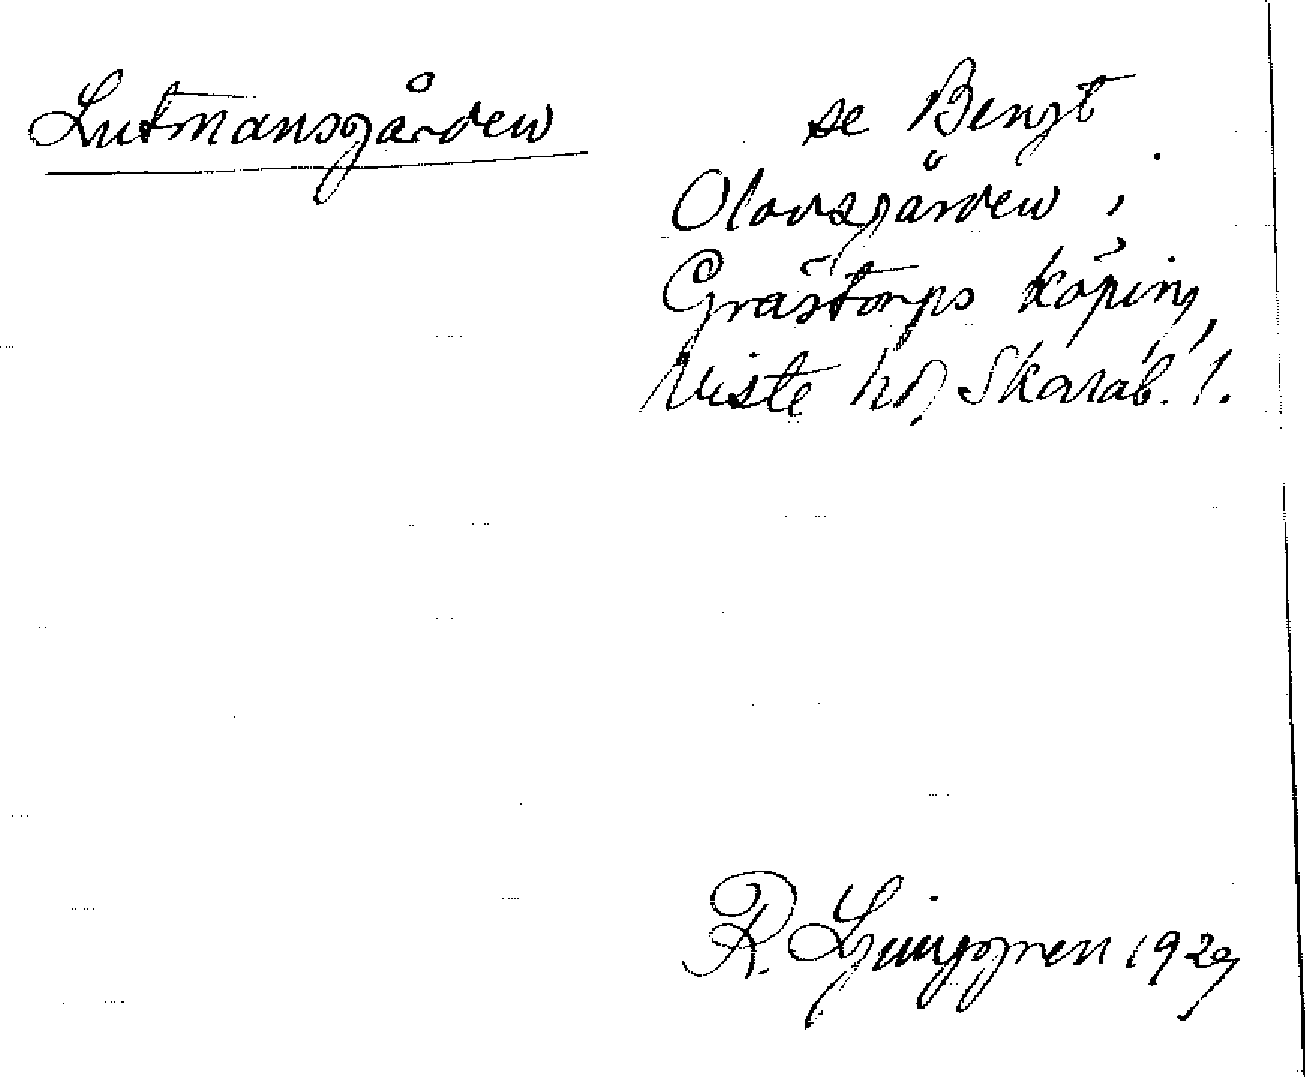 Lutmansgården
se Bengt
Olovsgården i
Grästorps köping,
Viste hd, Skarab. l.
R. Ljunggren 1929